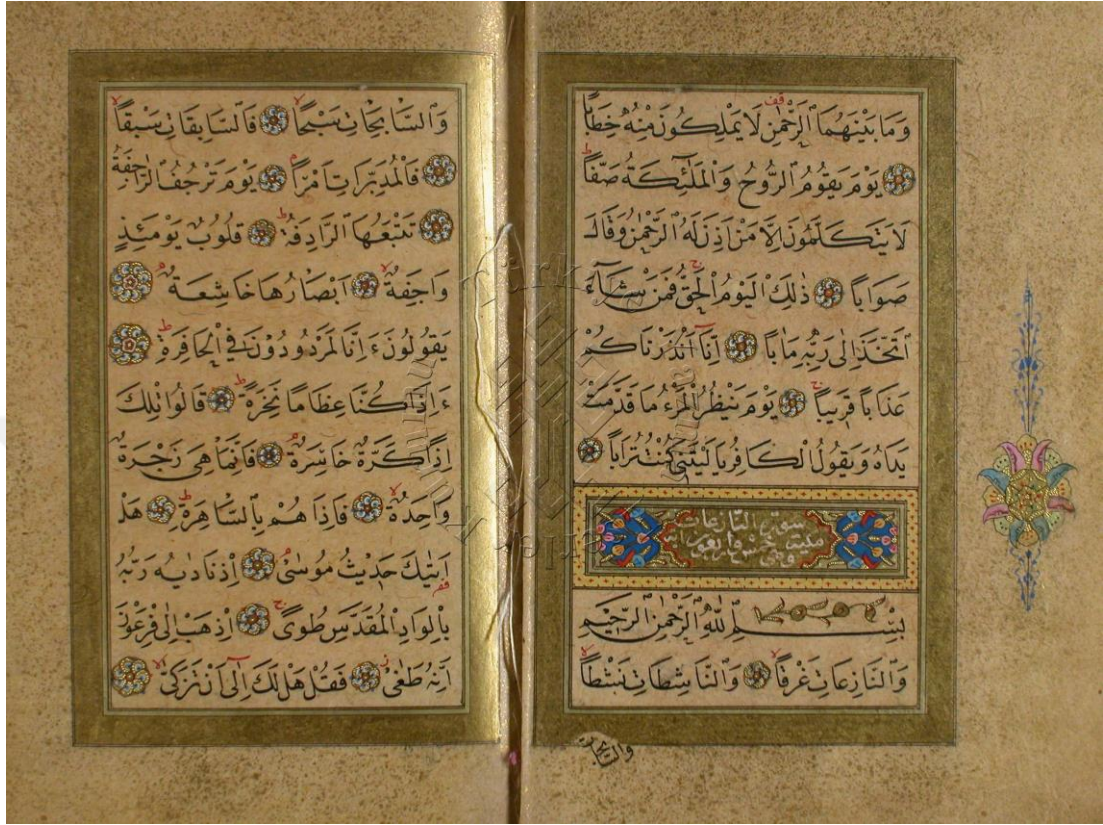 وَمَا بَيْنَهُمَا ٱلرَّحْمٰنِ لَا يَمْلِكُونَ مِنْهُ خِطَابًا
يَوْمَ يَقُومُ ٱلرُّوحُ وَٱلْمَلٰٓئِكَةُ صَفًّا
لَا يَتَكَلَّمُونَ اِلَّا مَنْ اَذِنَ لَهُ ٱلرَّحْمٰنُ وَقَالَ
صَوَابًا ذٰلِكَ ٱلْيَوْمُ ٱلْحَقُّ فَمَنْ شَآءَ
ٱتَّخَذَ اِلٰى رَبِّهٖ مَاٰبًا اِنَّٓا اَنْذَرْنَاكُمْ
عَذَابًا قَرِيبًا يَوْمَ يَنْظُرُ ٱلْمَرْءُ مَا قَدَّمَتْ
يَدَاهُ وَيَقُولُ ٱلْكَافِرُ يَا لَيْتَنِي كُنْتُ تُرَابًا
سورة النازعات
بِسْمِ ٱللّٰهِ ٱلرَّحْمٰنِ ٱلرَّحِيمِ
وَٱلنَّازِعَاتِ غَرْقًا وَٱلنَّاشِطَاتِ نَشْطًا
وَٱلسَّابِحَاتِ سَبْحًا فَٱلسَّابِقَاتِ سَبْقًا
فَٱلْمُدَبِّرَاتِ اَمْرًا يَوْمَ تَرْجُفُ ٱلرَّاجِفَةُ
تَتْبَعُهَا ٱلرَّادِفَةُ قُلُوبٌ يَوْمَئِذٍ
وَاجِفَةٌ اَبْصَارُهَا خَاشِعَةٌ
يَقُولُونَ ءَاِنَّا لَمَرْدُودُونَ فِي ٱلْحَافِرَةِ
ءَاِذَا كُنَّا عِظَامًا نَخِرَةً قَالُوا تِلْكَ
اِذًا كَرَّةٌ خَاسِرَةٌ فَاِنَّمَا هِيَ زَجْرَةٌ
وَاحِدَةٌ فَاِذَا هُمْ بِٱلسَّاهِرَةِ هَلْ
اَتٰيكَ حَدِيثُ مُوسٰى اِذْ نَادٰيهُ رَبُّهُ
بِٱلْوَادِ ٱلْمُقَدَّسِ طُوًى اِذْهَبْ اِلٰى فِرْعَوْنَ
اِنَّهُ طَغٰى فَقُلْ هَلْ لَكَ اِلٰٓى اَنْ تَزَكّٰى